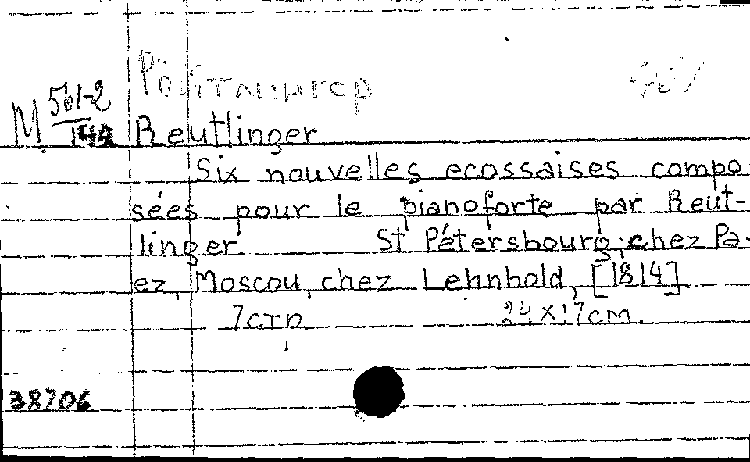 Рейтлингер
M 561-2
Reutlinger
Six nouvelles ecossaises compo-
sées pour le pianoforte par Reut-
linger St Pétersbourg, chez Pa-
ez, Moscou, chez Lehnhold, [1814]
7 стр 24 x 17 cm.
38706